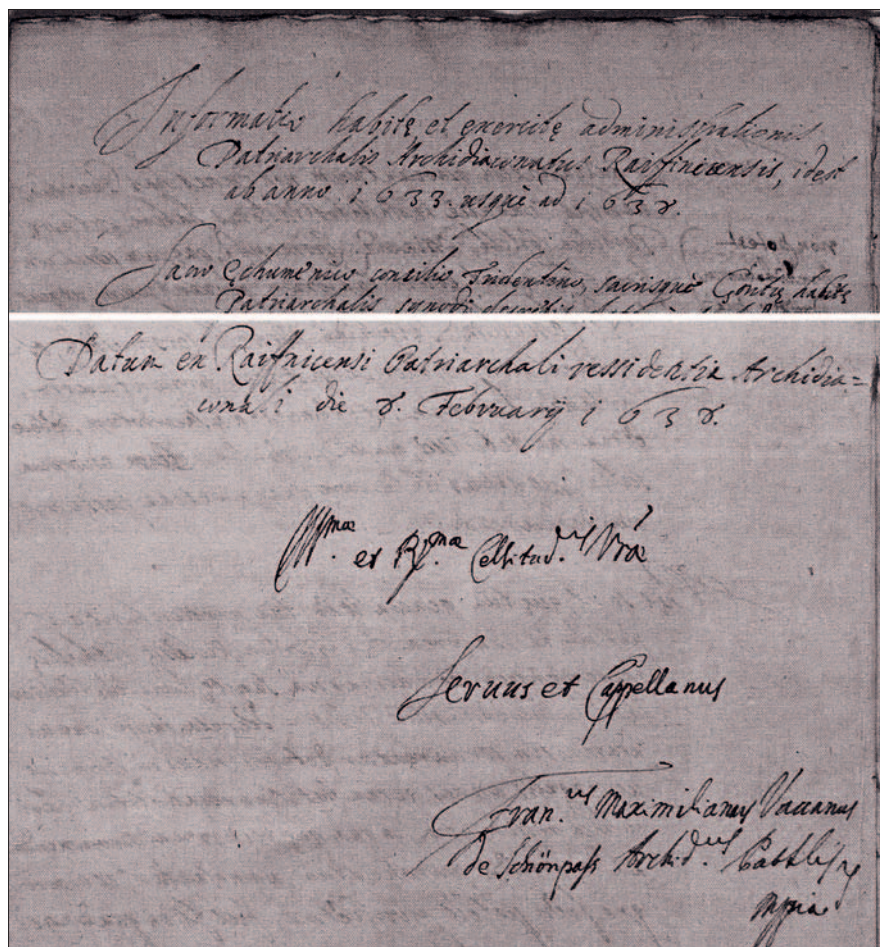 Informatio habitę et exercitę administrationis
Patriarchalis Archidiaconatus Raiffnicensis, idest
ab anno i633. usquè ad i638.
Sacro Ęchumenico concilio Tridentino, sacrisquè Goritię habitę
Patriarchalis synodi decretis
Datum ex Raiffnicensi Patriarchali ressidentia Archidia=
conali die 8. Februarij i638.
Ill.mæ et R.mæ Celsitud.is Vræ
Seruus et Cappellanus
Fran.us Maximilianus Vaccanus
de Schönpass Archid.us